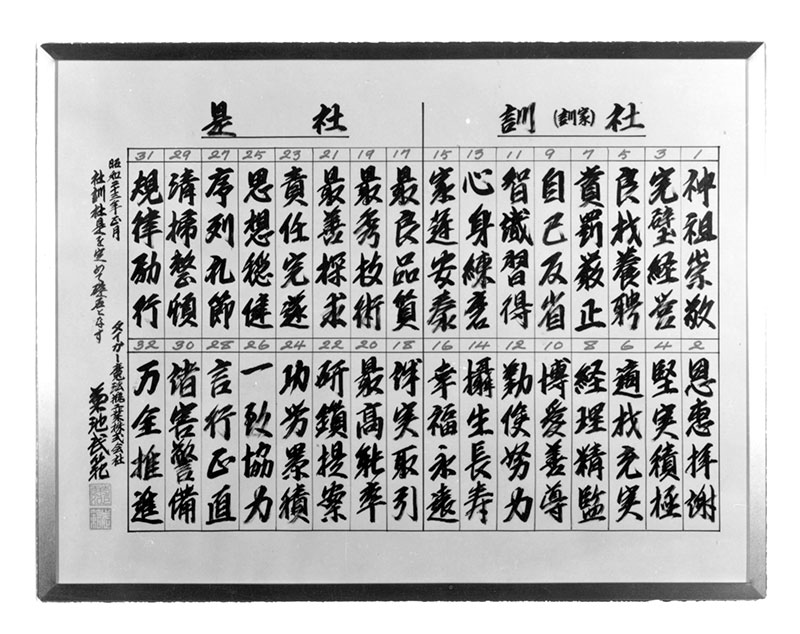 社(家訓)訓
1 神祖崇敬
2 恩恵拝謝
3 完璧経営
4 堅実積極
5 良材養聘
6 適材充実
7 賞罰厳正
8 経理精監
9 自己反省
10 博愛善導
11 智識習得
12 勤倹努力
13 心身練磨
14 攝生長寿
15 家庭安泰
16 幸福永遠
社是
17 最良品質
18 誠実取引
19 最秀技術
20 最高能率
21 最善探求
22 研鑽提案
23 責任完遂
24 功労累積
25 思想穏健
26 一致協力
27 序列礼節
28 言行正直
29 清掃整頓
30 諸害警備
31 規律励行
32 万全推進
昭和 正月
社訓社是を定めて となす
タイガー魔法瓶工業株式会社
菊池武範